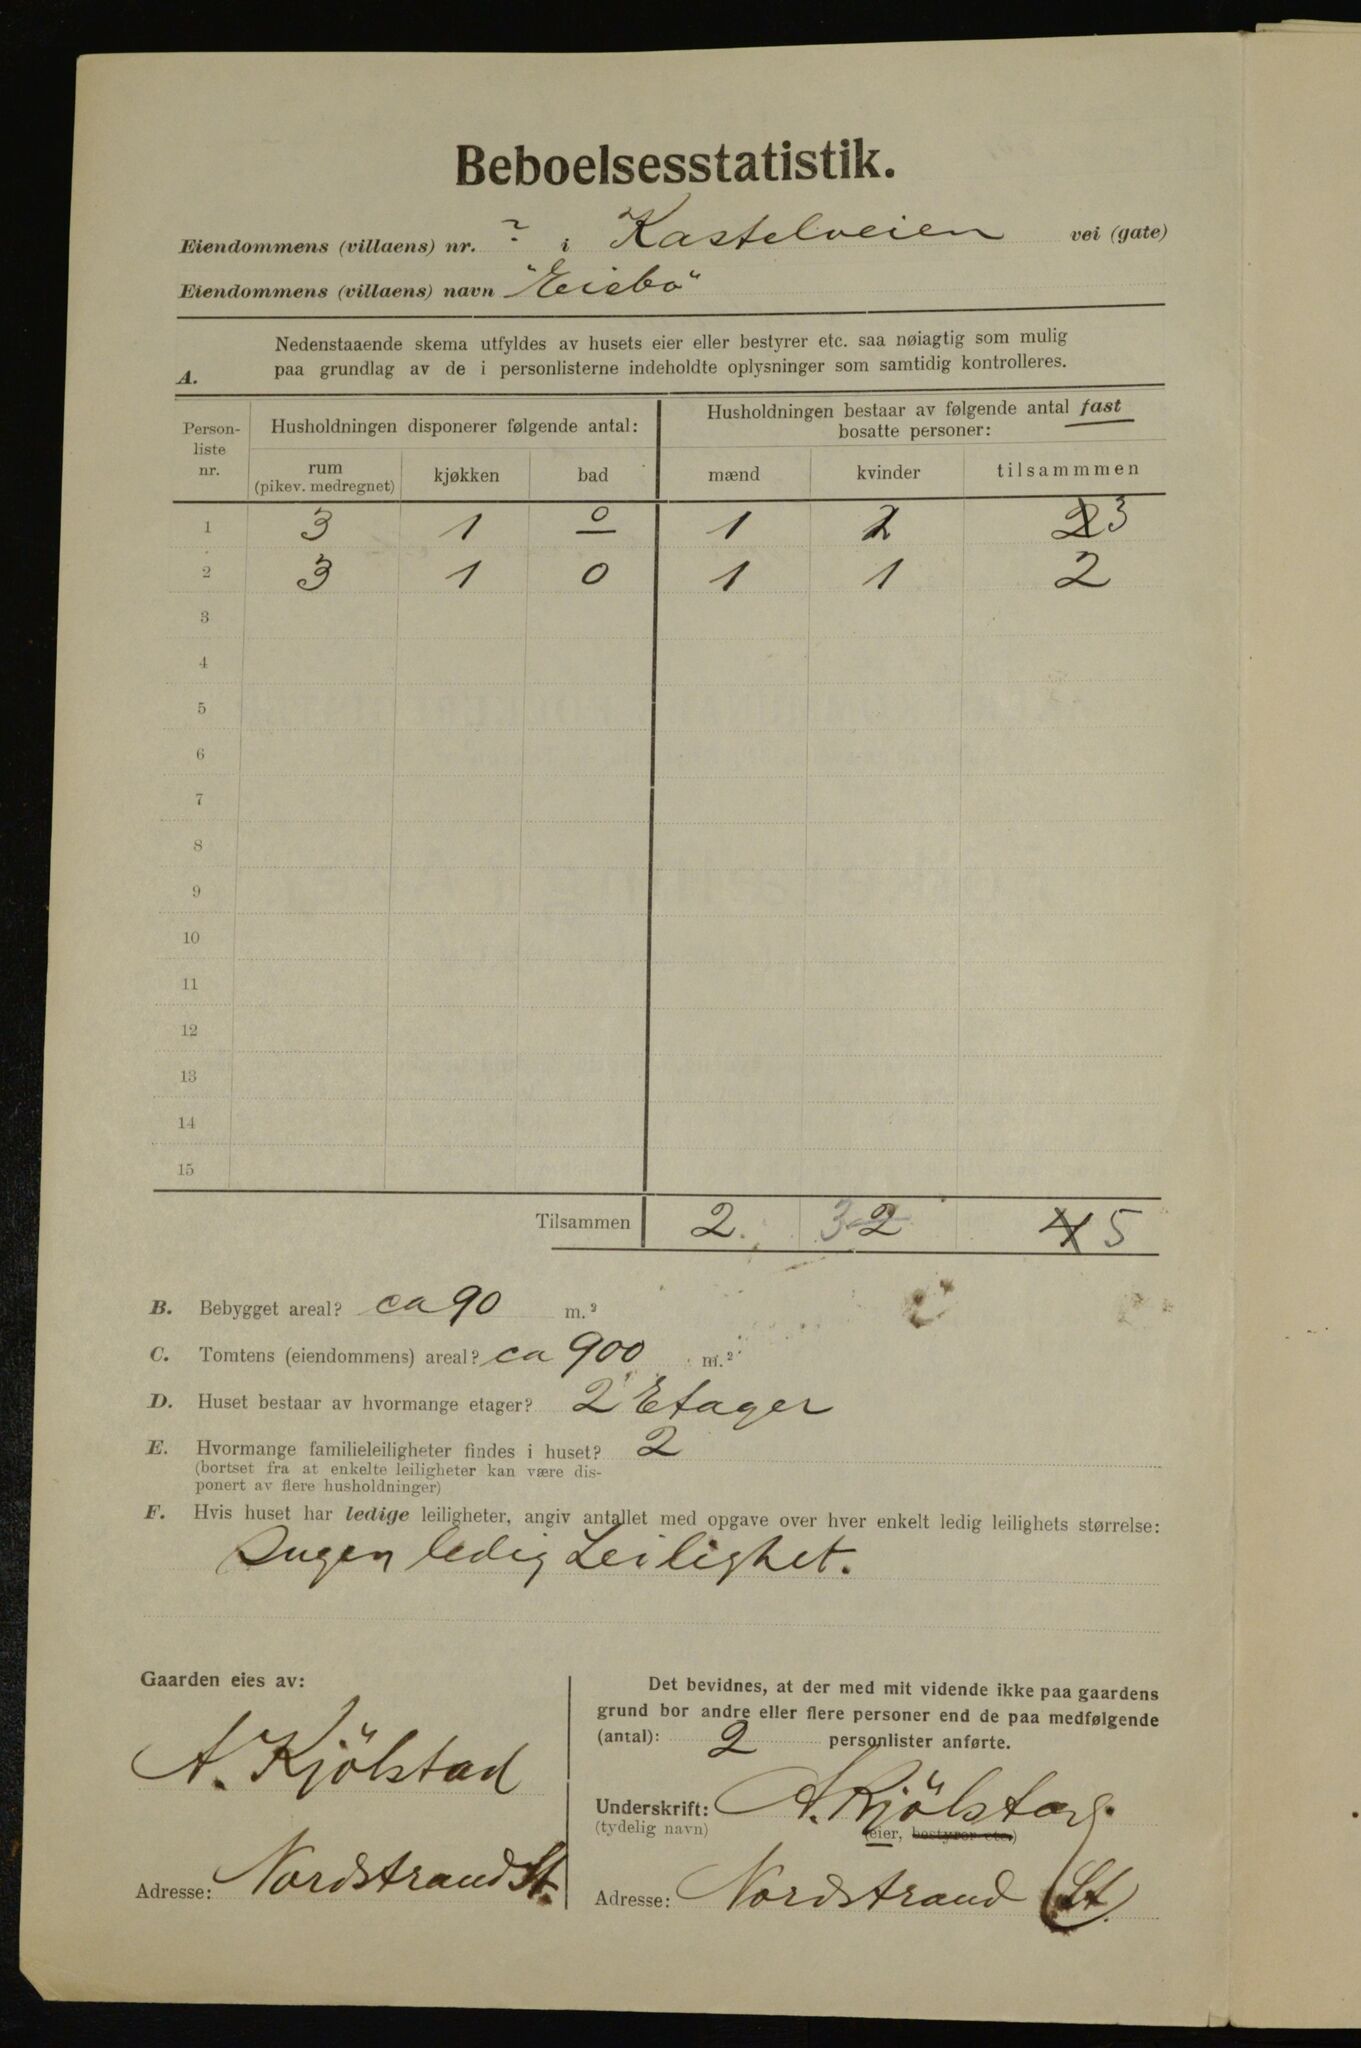 Beboelsesstatistik.
Eiendommens (villaens) nr. ? i Kastelveien vei (gate)
Eiendommens (villaens) navn "Eiebo"
A. Nedenstaaende skema utfyldes av husets eier eller bestyrer etc. saa nøiagtig som mulig
paa grundlag av de i personlisterne indeholdte oplysninger som samtidig kontrolleres.
Person-liste nr. Husholdningen disponerer følgende antal: Husholdningen bestaar av følgende antal fast bosatte personer:
rum (pikev. medregnet) kjøkken bad mænd kvinder tilsammmen
1 3 1 0 1 2 2 3
2 3 1 0 1 1 2
3
4
5
6
7
8
9
10
11
12
13
14
15
Tilsammen 2. 3 2 4 5
B. Bebygget areal? ca 90 m.²
C. Tomtens (eiendommens) areal? ca 900 m.²
D. Huset bestaar av hvormange etager? 2 Etager
E. Hvormange familieleiligheter findes i huset? 2
(bortset fra at enkelte leiligheter kan være dis-
ponert av flere husholdninger)
F. Hvis huset har ledige leiligheter, angiv antallet med opgave over hver enkelt ledig leilighets størrelse:
Ingen ledig Leilighet.
Gaarden eies av:
A. Kjölstad
Adresse: Nordstrand St.
Det bevidnes, at der med mit vidende ikke paa gaardens
grund bor andre eller flere personer end de paa medfølgende
(antal): 2 personlister anførte.
Underskrift: A. Kjölstad.
(tydelig navn) (eier, bestyrer etc.)
Adresse: Nordstrand St.